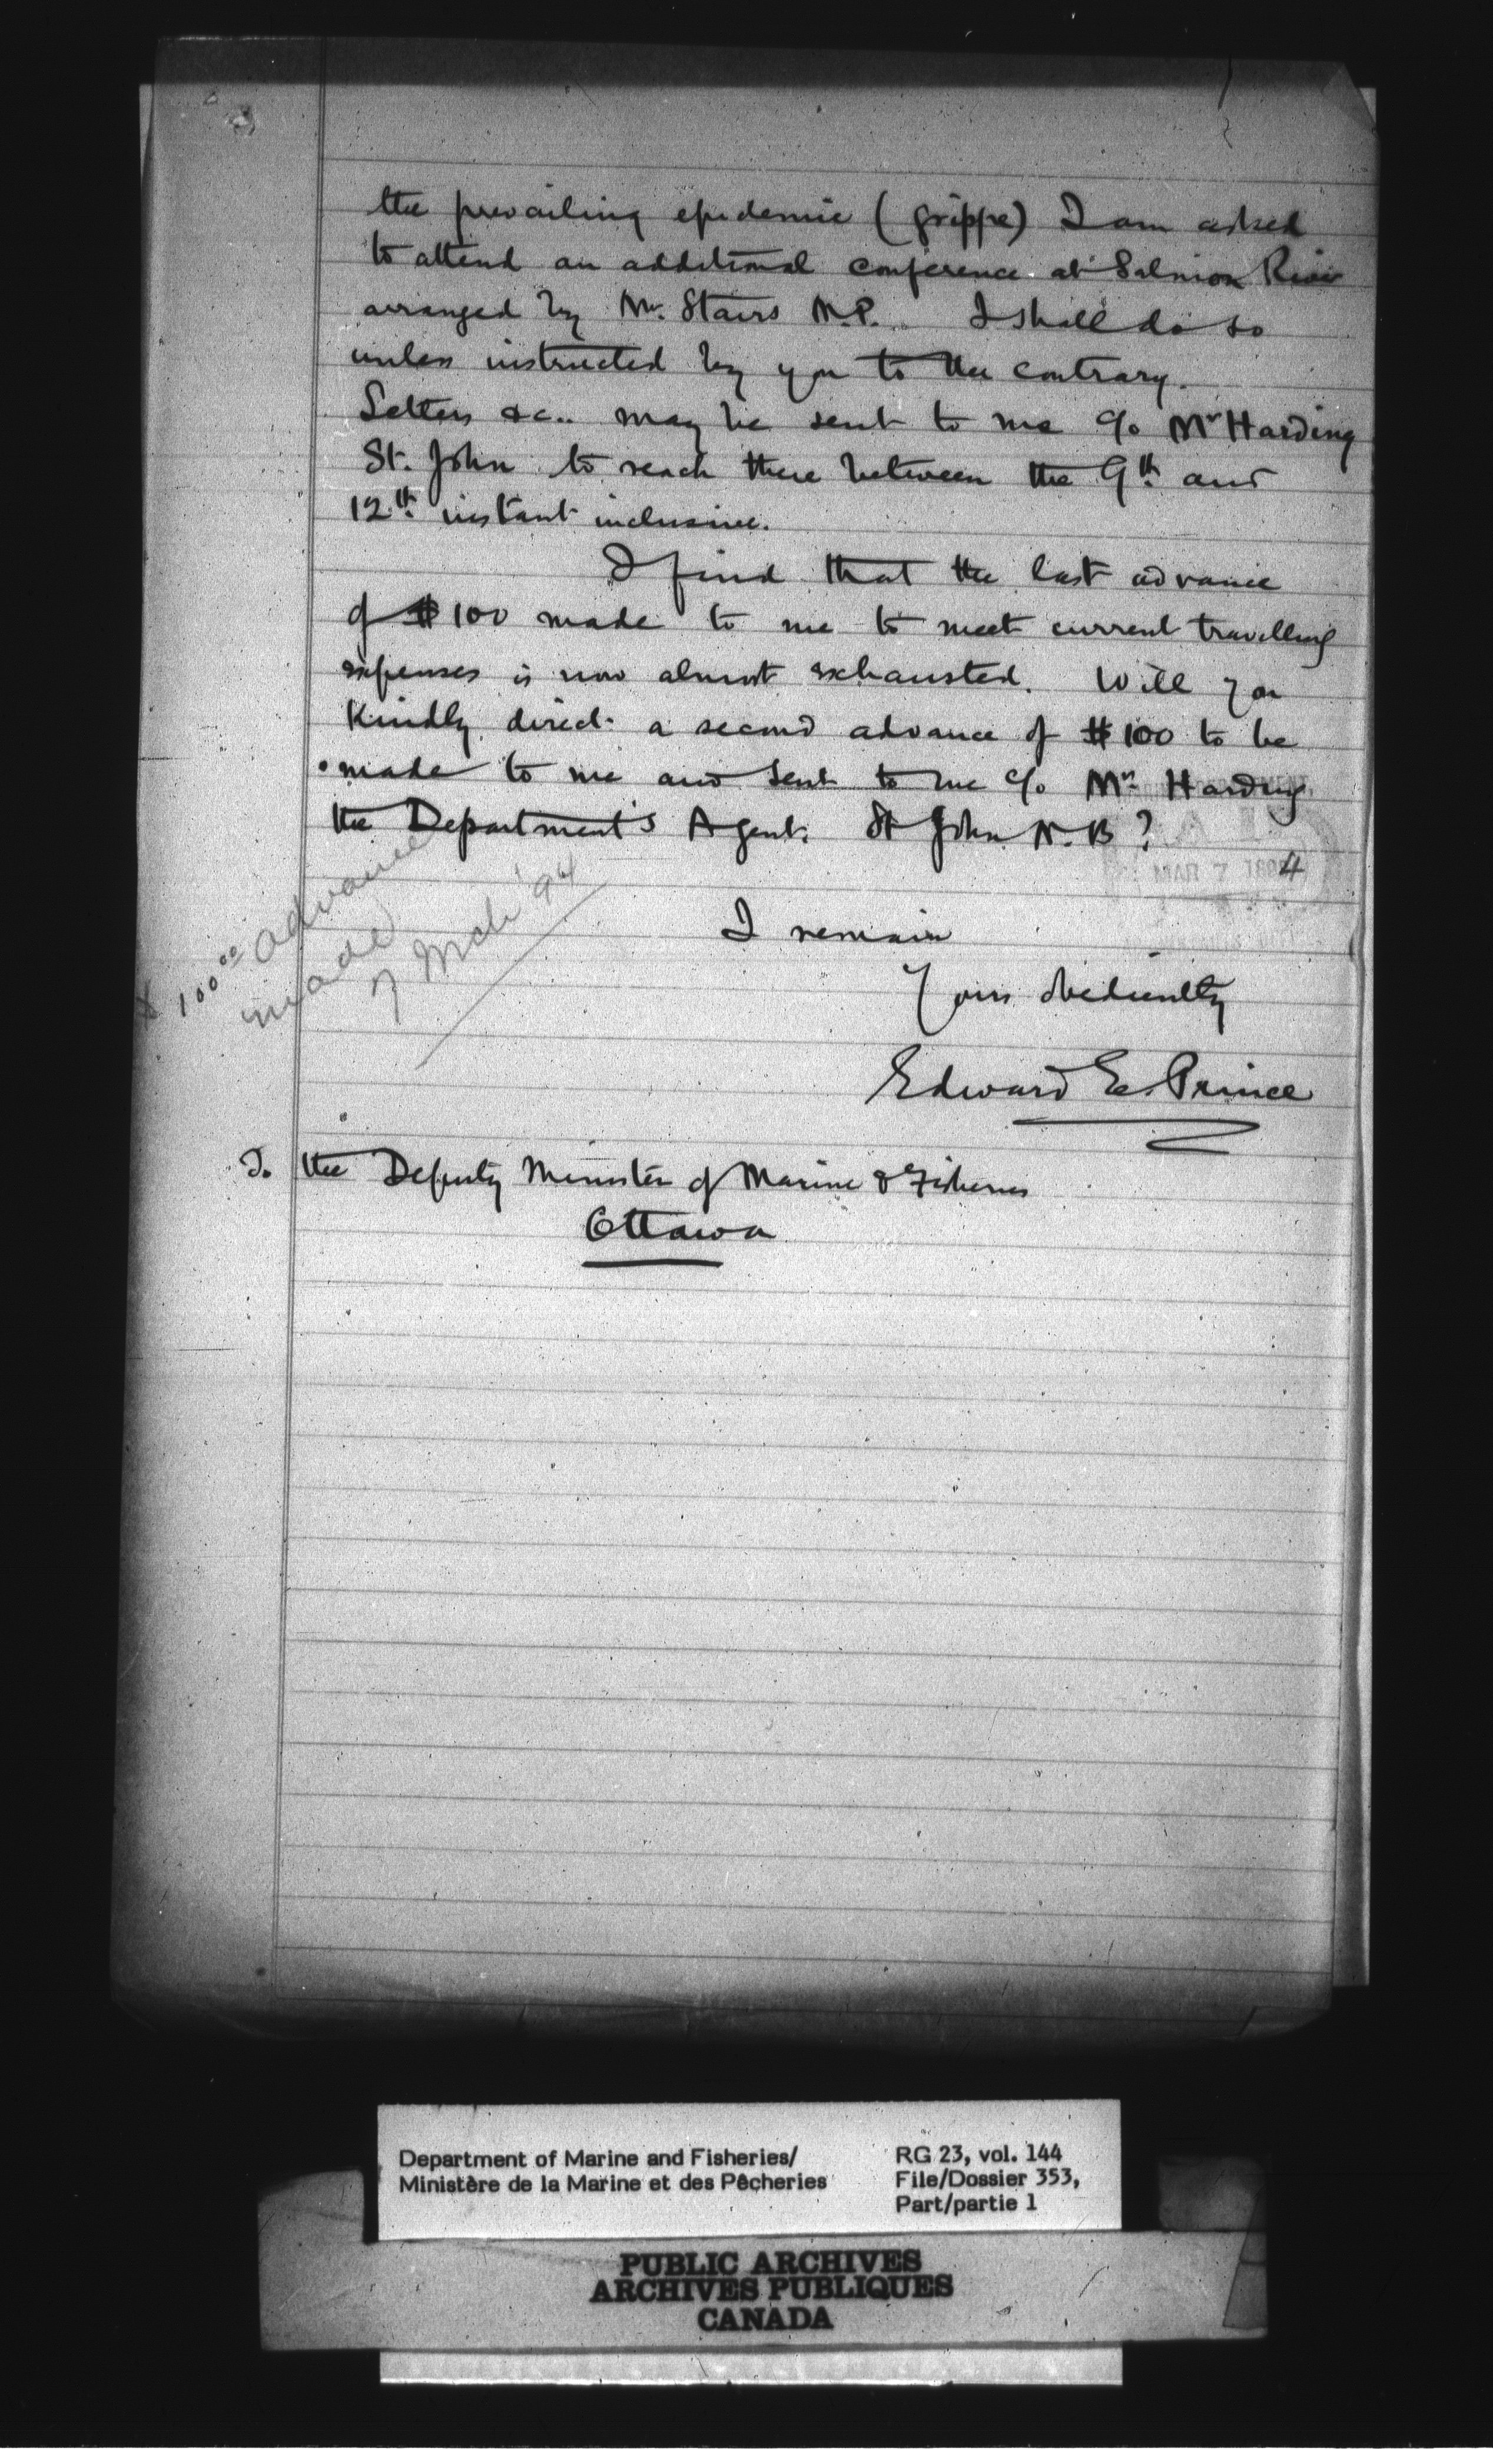 the prevailing epidemic (grippe) I am asked
to attend an additional conference at Salmon River
arranged by Mr. Stairs M.P. I shall do so
unless instructed by you to the contrary.
Letters &c.. may be sent to me c/o Mr Harding
St. John to reach there between the 9th and
12th instant inclusive.
I find that the last advance
of $100 made to me to meet current travelling
expenses is now almost exhausted. Will you
Kindly direct a second advance of $100 to be
made to me and sent to me c/o Mr Harding
the Department's Agent. St John N.B?
MAR 7 1894
$100.00 advance
made
7 Mch '94
I remain
Yours obediently
Edward E. Prince
To the Deputy Minister of Marine & Fisheries
Ottawa
Department of Marine and Fisheries/
Ministère de la Marine et des Pêcheries
RG 23, vol. 144
File/Dossier 353,
Part/partie 1
PUBLIC ARCHIVES
ARCHIVES PUBLIQUES
CANADA